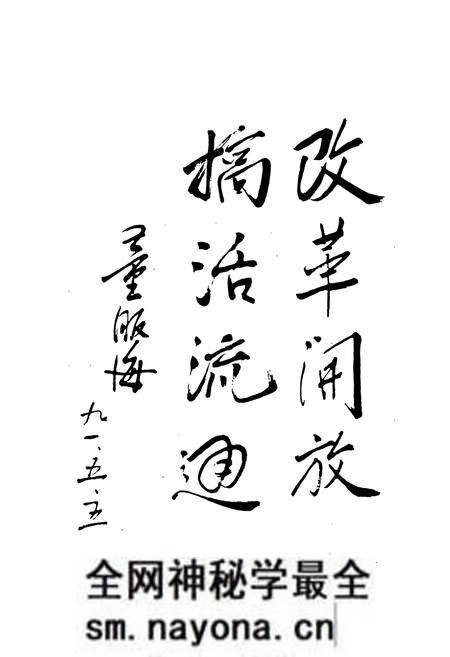 改革开放
搞活流通
九一.五.五
全网神秘学最全
sm.nayona.cn